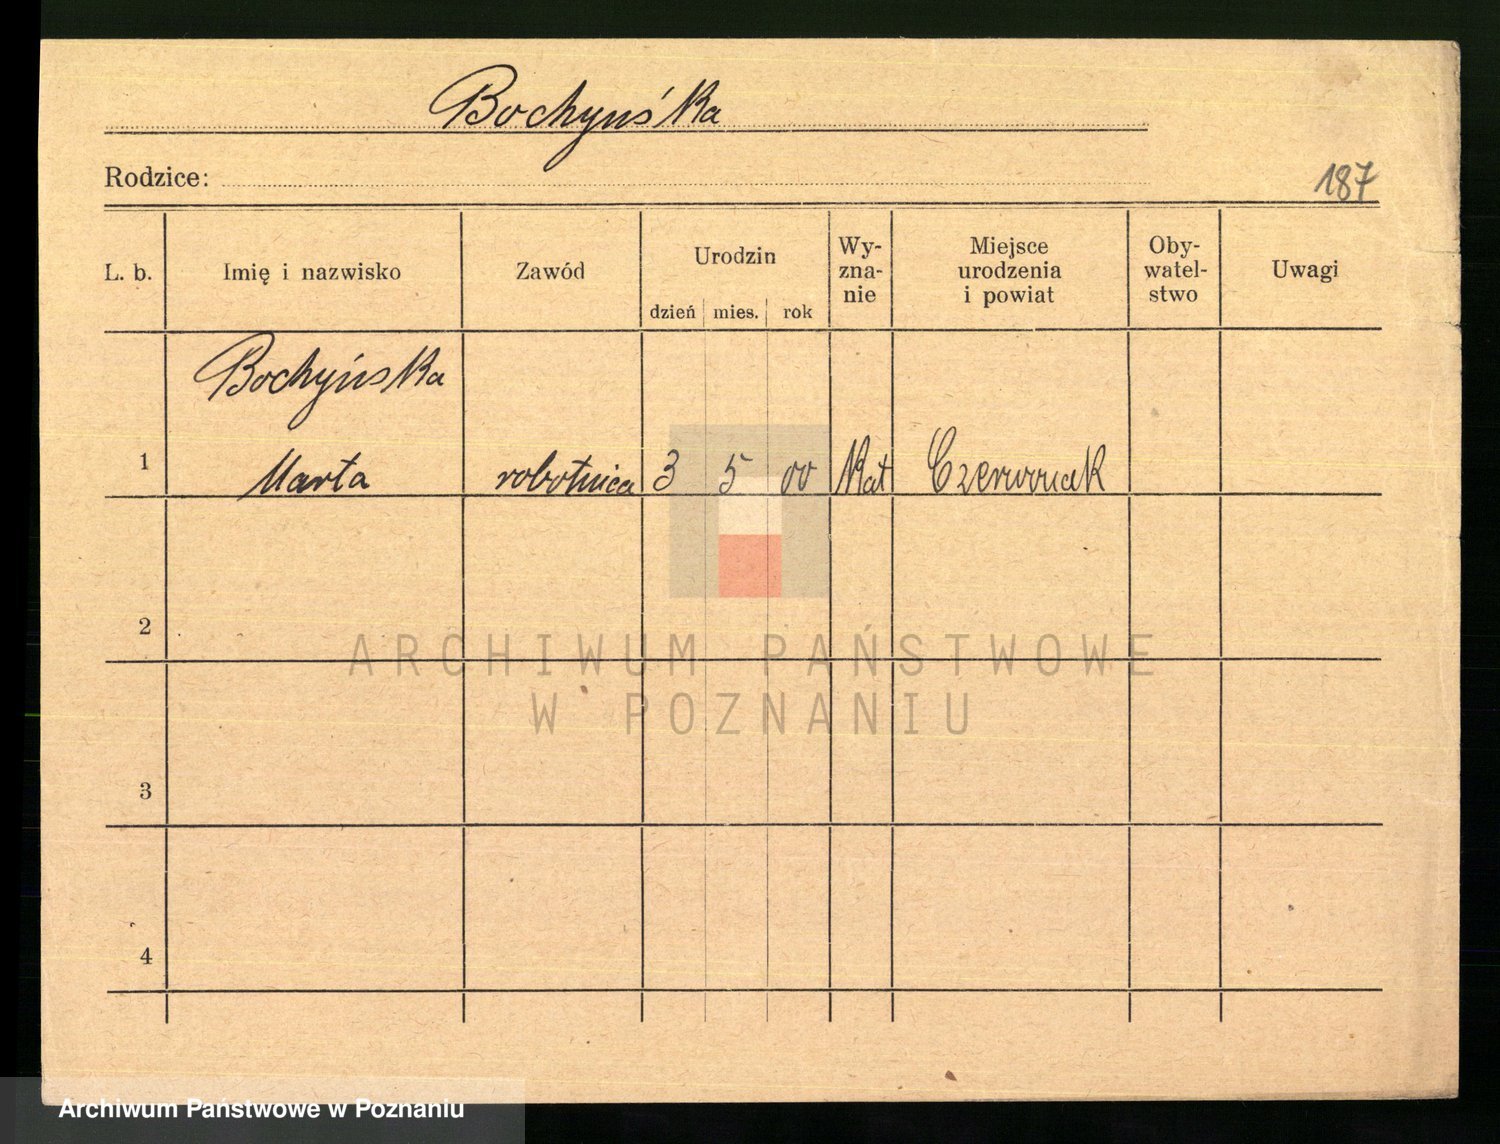 Bochyńska
Rodzice:
187
L. b.
Imię i nazwisko
Zawód
Urodzin
dzień
mies.
rok
Wy-
zna-
nie
Miejsce
urodzenia
i powiat
Oby-
watel-
stwo
Uwagi
Bochyńska
1 Marta robotnica 3 5 00 Kat Czerwonak
2
3
4
ARCHIWUM PAŃSTWOWE
W POZNANIU
Archiwum Państwowe w Poznaniu